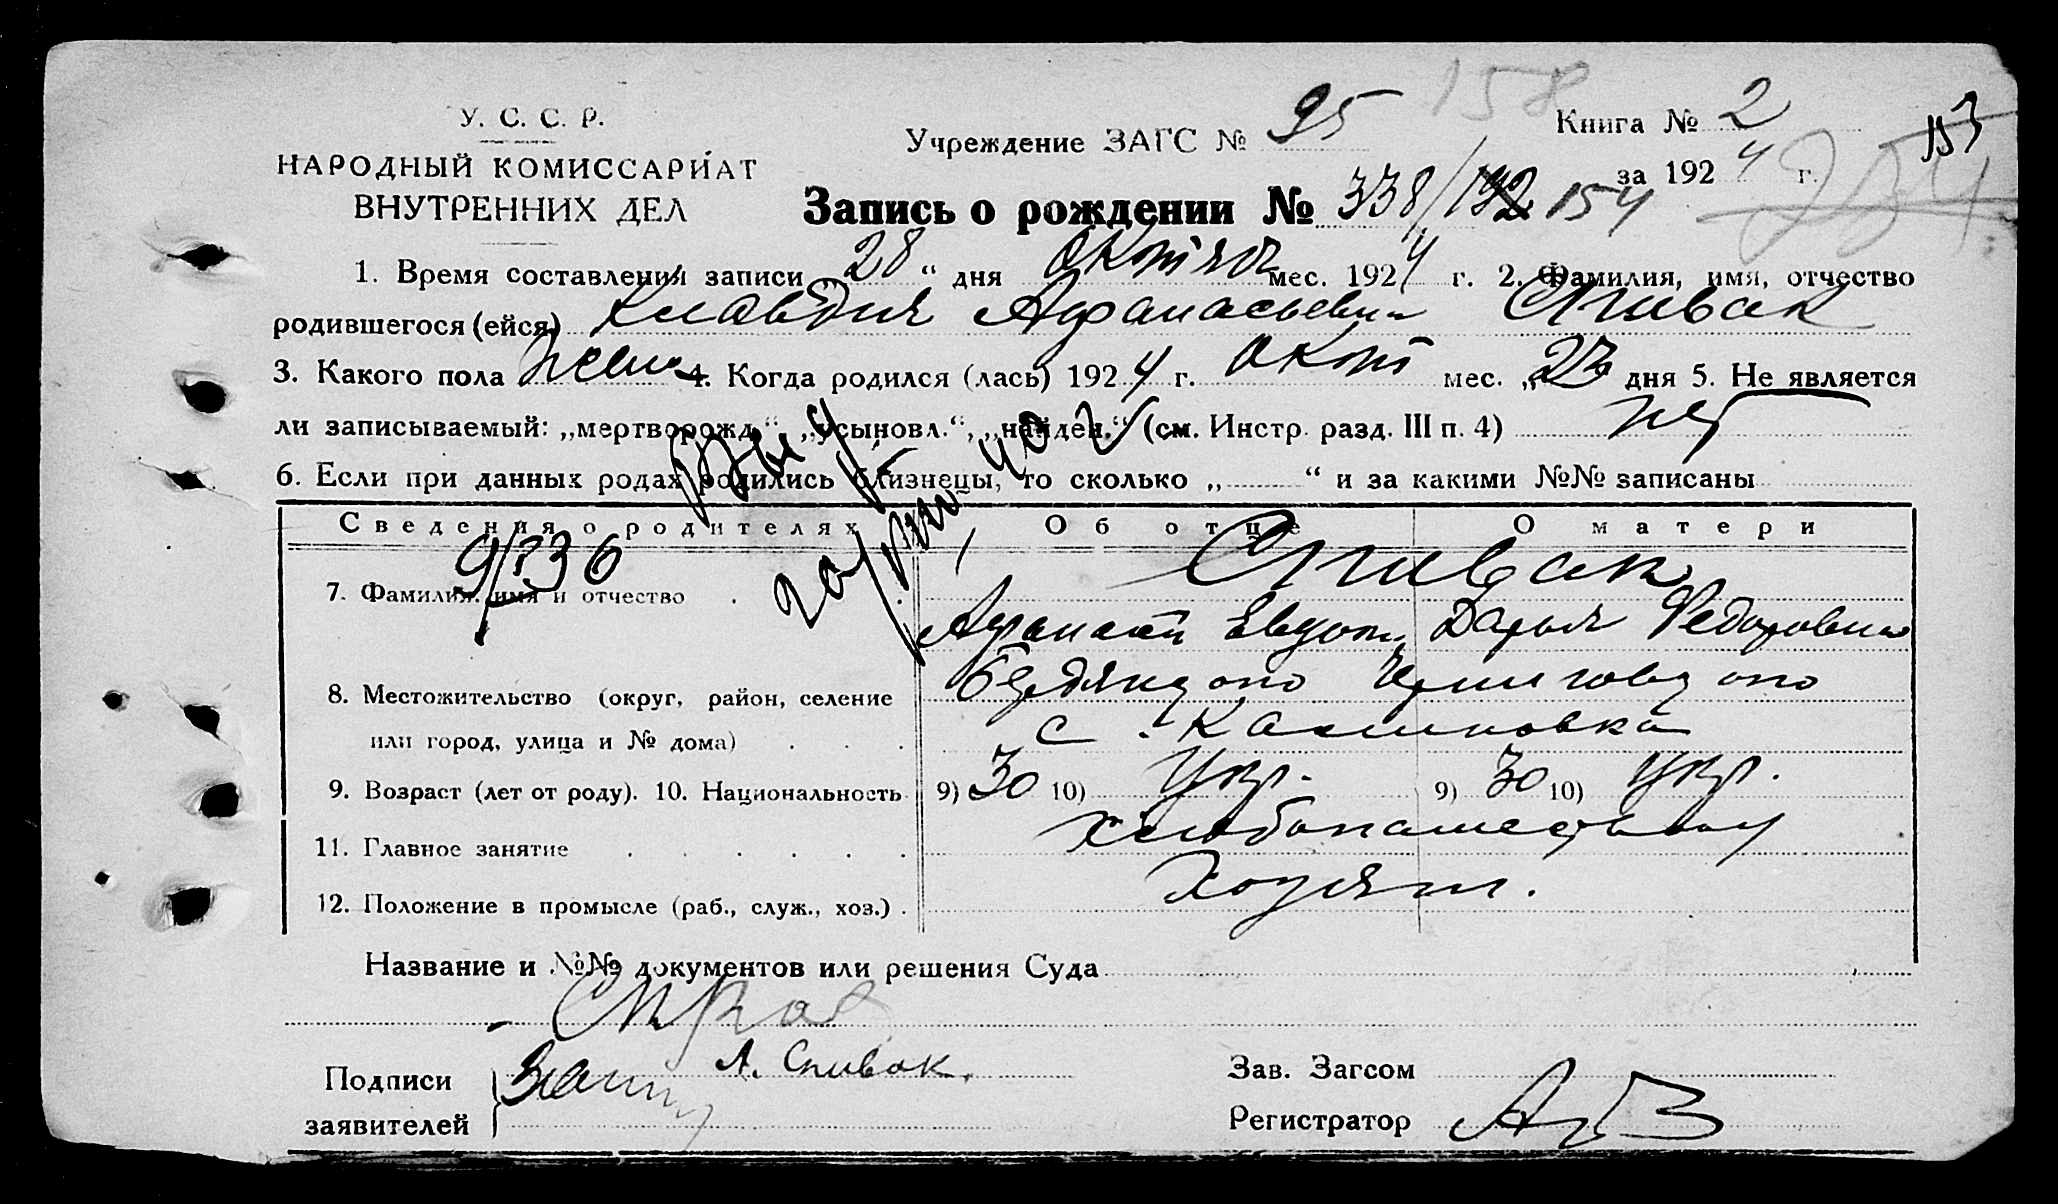 158
У. С. С. Р.
НАРОДНЫЙ КОМИССАРИАТ
ВНУТРЕННИХ ДЕЛ
Учреждение ЗАГС № 95
Книга № 2
153
за 1924 г.
Запись о рождении № 338/192 154
1. Время составления записи „28“ дня мес. 1924 г. 2. Фамилия, имя, отчество
родившегося (ейся) Клавдия Афанасьевна Спивак
3. Какого пола жен 4. Когда родился (лась) 1924 г. окт мес. „23 дня 5. Не является
ли записываемый: „мертворожд.“ „усыновл.“, „найден.“ (см. Инстр. разд. III п. 4) нет
6. Если при данных родах родились близнецы, то сколько „ “ и за какими №№ записаны
Сведения о родителях Об отце О матери
7. Фамилия, имя и отчество Спивак
Дарья Федоровна
8. Местожительство (округ, район, селение
или город, улица и № дома) с. Калиновка
9. Возраст (лет от роду). 10. Национальность 9) 30 10) Укр. 9) 30 10) Укр.
11. Главное занятие
12. Положение в промысле (раб., служ., хоз.)
Название и №№ документов или решения Суда
Подписи А. Спивак.
заявителей
Зав. Загсом
Регистратор